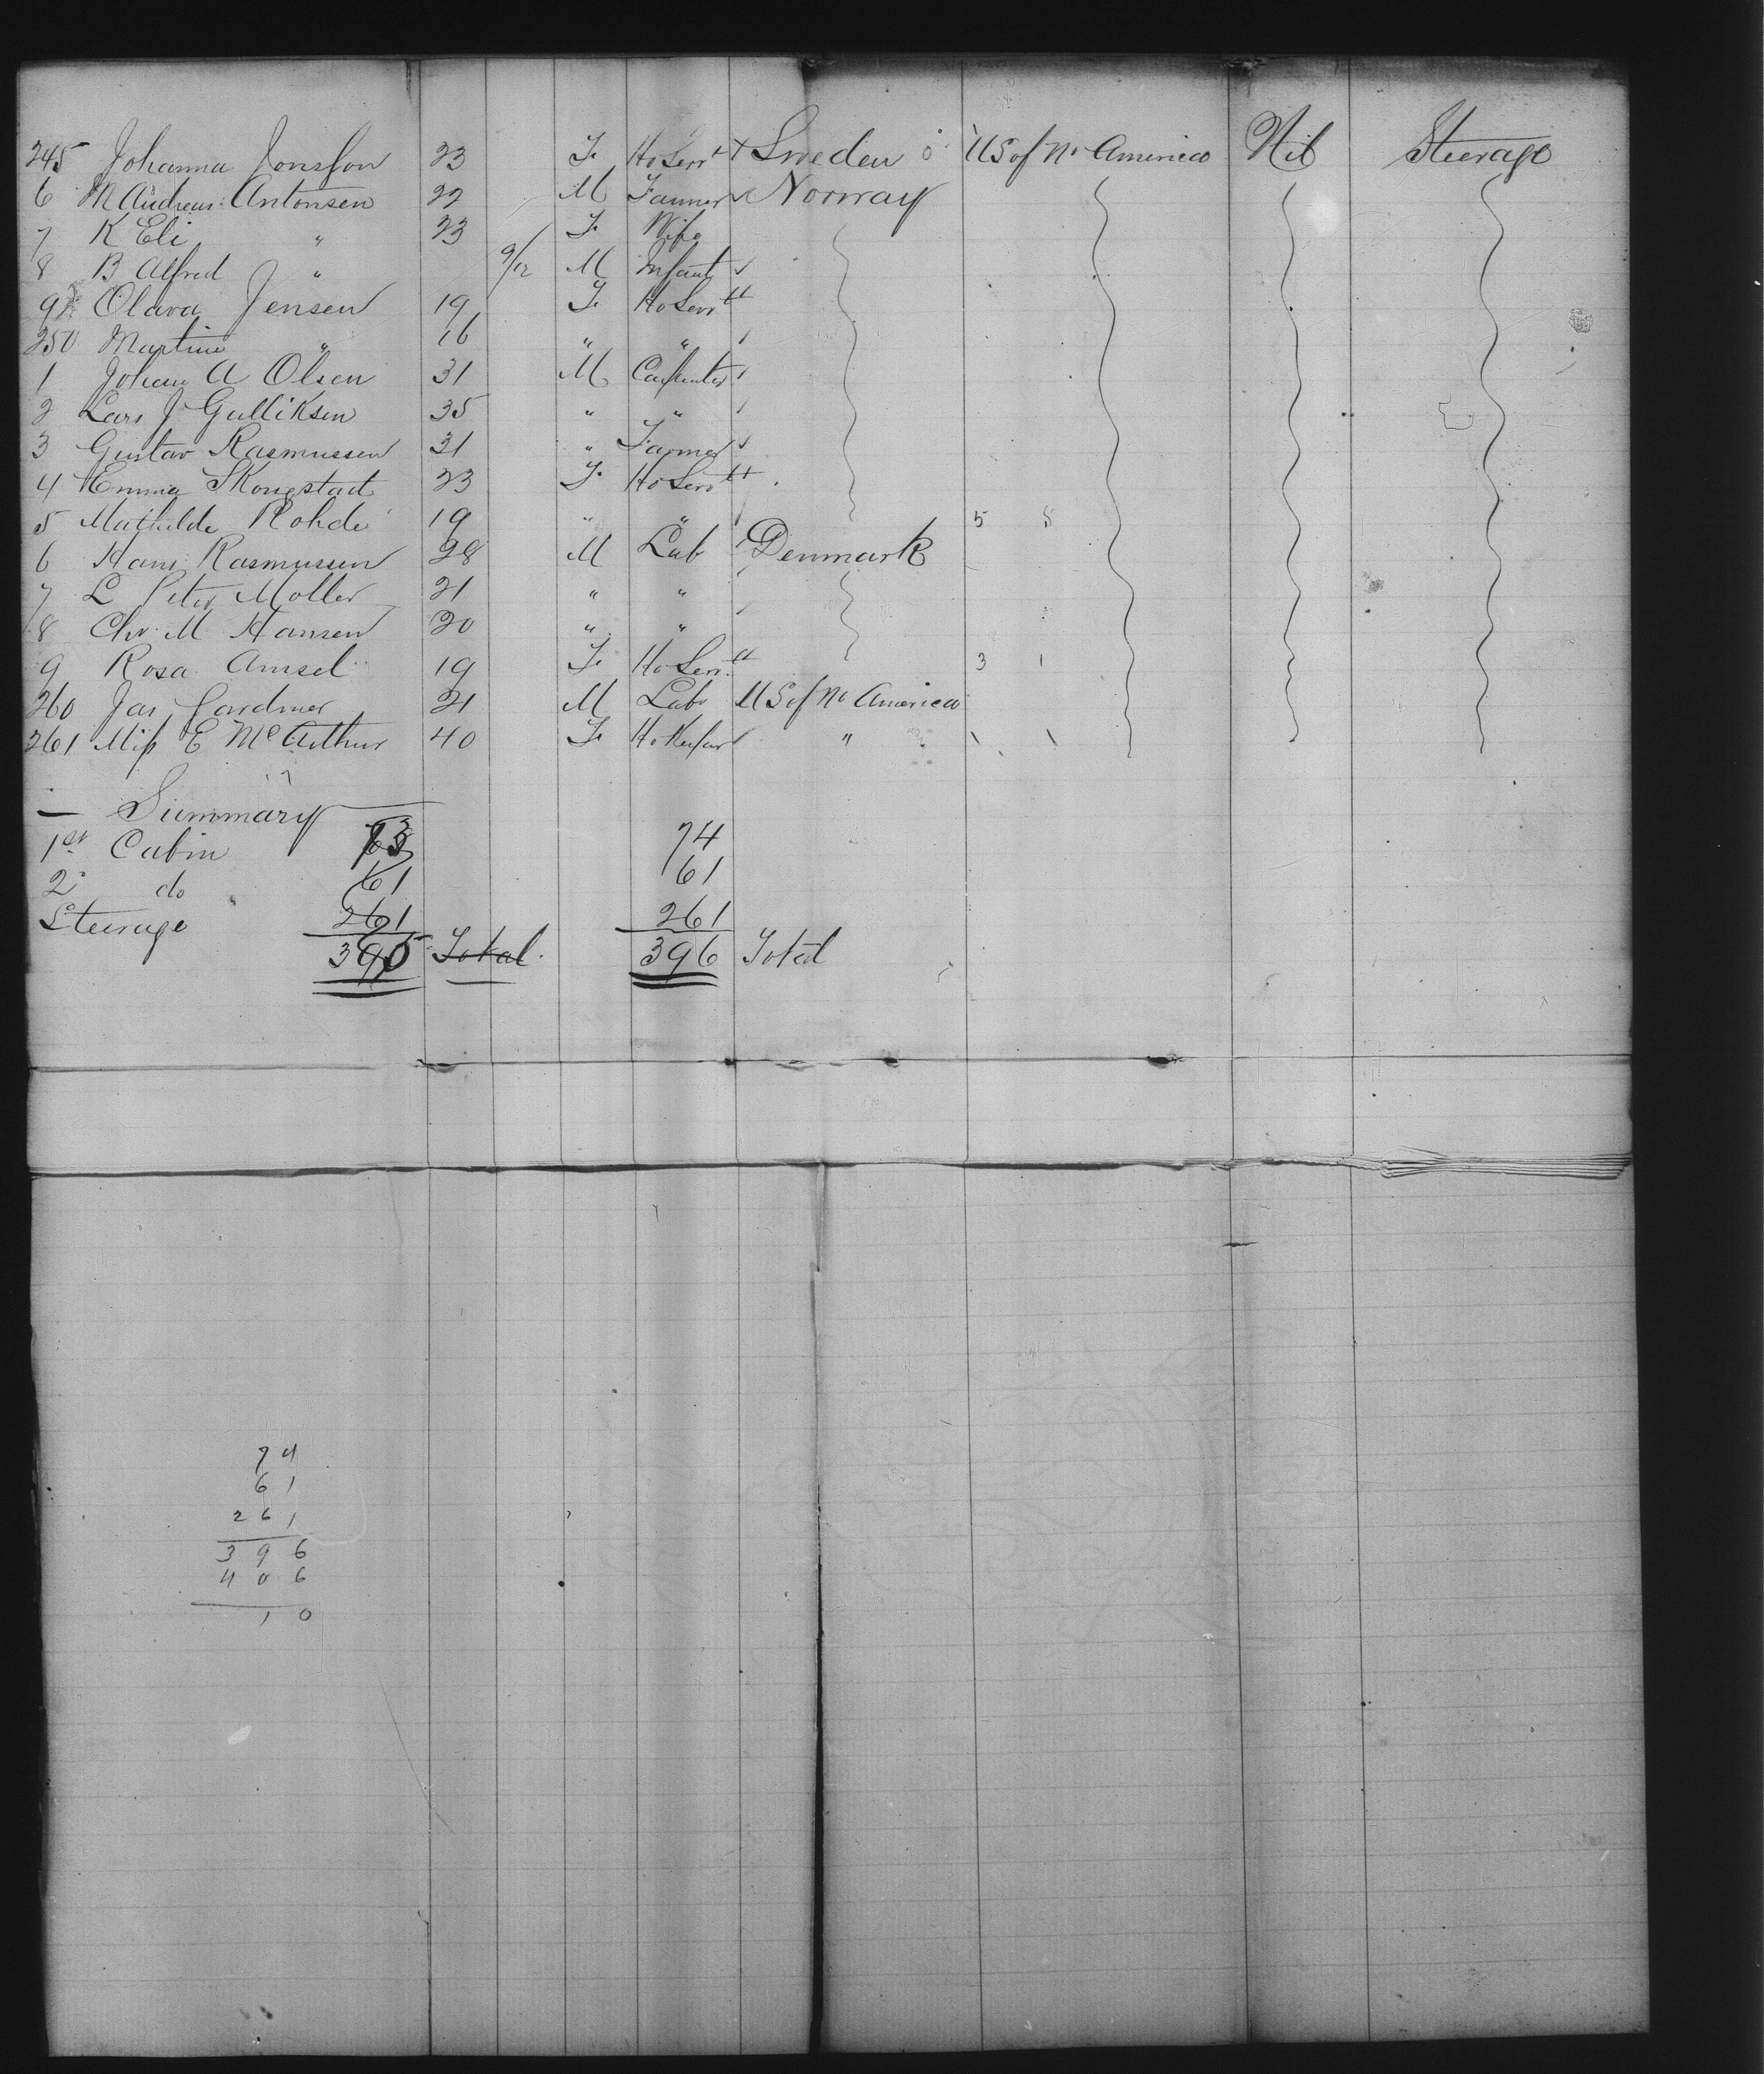 245 Johanna Jonsson 23 F. Ho Servt Sweden US of No America Nil Steerage
6 M Andreas Antonsen 22 M Farmer Norway
7 K Eli " 23 F. Wife
8 B Alfred " 9/12 M Infant
9 Olava Jensen 19 F. Ho Servt
250 Martine " 16 " "
1 Johan A Olsen 31 M Carpenter
2 Lars J Gulliksen 35 " "
3 Gustav Rasmussen 31 " Farmer
4 Emma Skougstad 23 F. Ho Servt
5 Mathilde Rohde 19 " " 5 5
6 Hans Rasmussen 28 M Lab Denmark
7 L Peter Moller 21 " "
8 Chr. M Hansen 20 " "
9 Rosa Amsel 19 F. Ho Servt 3 1
260 Jas Gardner 21 M Labr US of No America
261 Miss E McArthur 40 F. Ho Keeper " \ \
— Summary
1st Cabin 73 74
2 do 61 61
Steerage 261 261
395 Total 396 Total
74
61
261
396
406
10